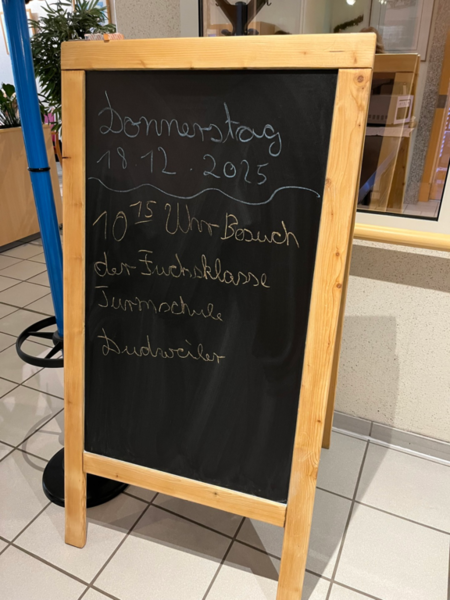 Donnerstag
18 12. 2025
10 15 Uhr Besuch
der Fuchsklasse
Turmschule
Dudweiler